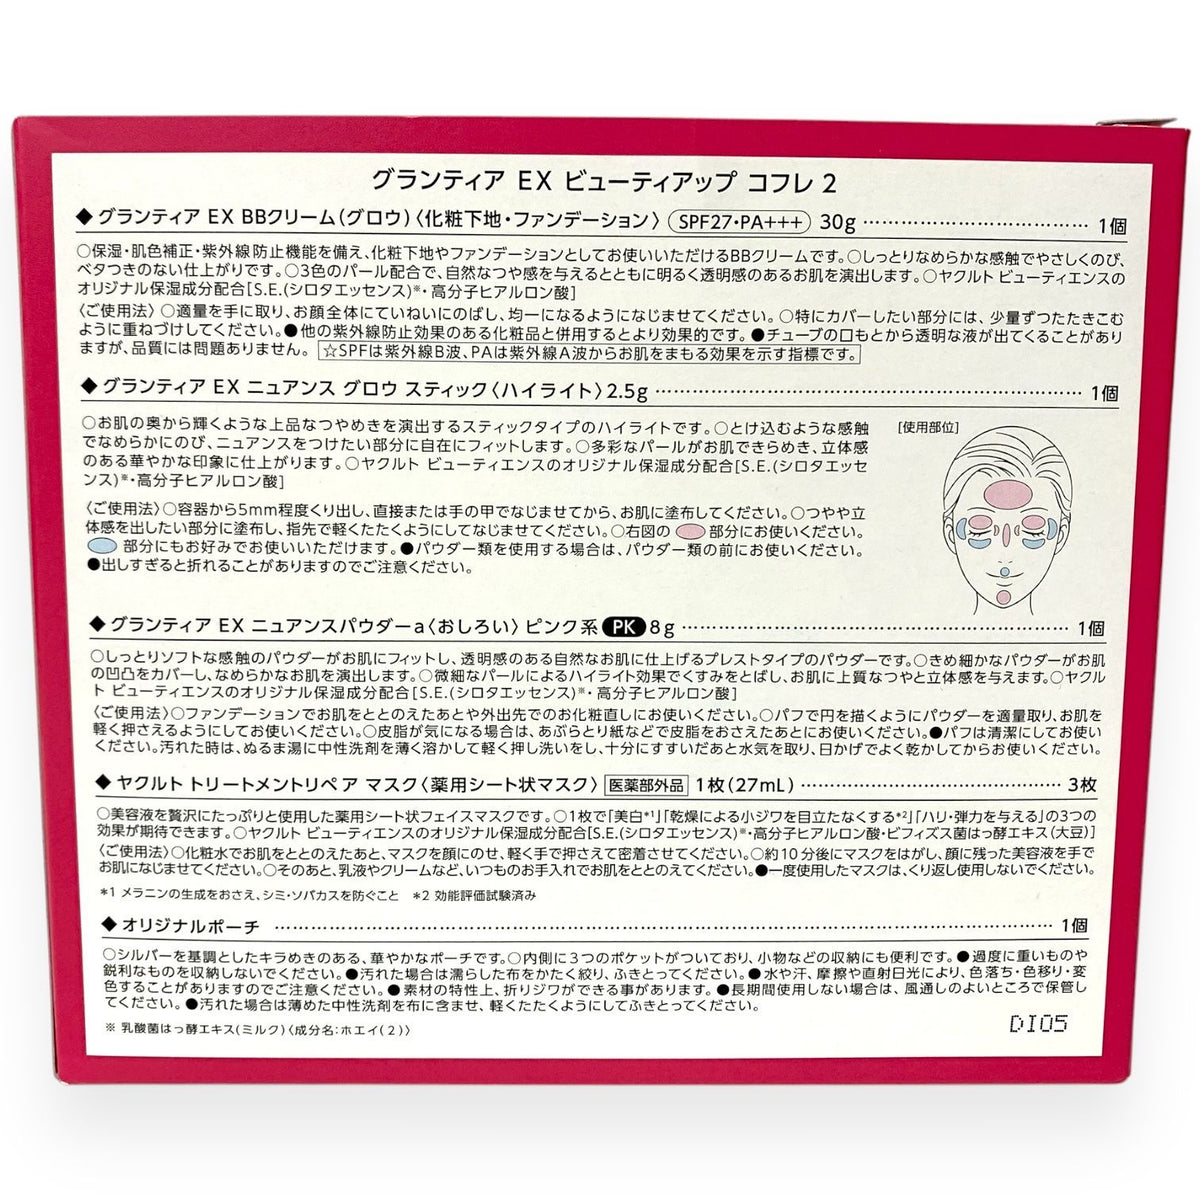 グランティア EX ビューティアップ コフレ 2
◆グランティア EX BBクリーム(グロウ)〈化粧下地・ファンデーション〉 SPF27・PA+++ 30g …………………………… 1個
○保湿・肌色補正・紫外線防止機能を備え、化粧下地やファンデーションとしてお使いいただけるBBクリームです。○しっとりなめらかな感触でやさしくのび、
ベタつきのない仕上がりです。○3色のパール配合で、自然なつや感を与えるとともに明るく透明感のあるお肌を演出します。○ヤクルト ビューティエンスの
オリジナル保湿成分配合[S.E.(シロタエッセンス)※・高分子ヒアルロン酸]
〈ご使用法〉○適量を手に取り、お顔全体にていねいにのばし、均一になるようになじませてください。○特にカバーしたい部分には、少量ずつたたきこむ
ように重ねづけしてください。●他の紫外線防止効果のある化粧品と併用するとより効果的です。●チューブの口もとから透明な液が出てくることがあり
ますが、品質には問題ありません。 ☆SPFは紫外線B波、PAは紫外線A波からお肌をまもる効果を示す指標です。
◆グランティア EX ニュアンス グロウ スティック〈ハイライト〉2.5g …………………………………………………… 1個
○お肌の奥から輝くような上品なつやめきを演出するスティックタイプのハイライトです。○とけ込むような感触
でなめらかにのび、ニュアンスをつけたい部分に自在にフィットします。○多彩なパールがお肌できらめき、立体感
のある華やかな印象に仕上がります。○ヤクルト ビューティエンスのオリジナル保湿成分配合[S.E.(シロタエッセ
ンス)※・高分子ヒアルロン酸]
[使用部位]
〈ご使用法〉○容器から5mm程度くり出し、直接または手の甲でなじませてから、お肌に塗布してください。○つやや立
体感を出したい部分に塗布し、指先で軽くたたくようにしてなじませてください。○右図の 部分にお使いください。
部分にもお好みでお使いいただけます。●パウダー類を使用する場合は、パウダー類の前にお使いください。
●出しすぎると折れることがありますのでご注意ください。
◆グランティア EX ニュアンスパウダーa〈おしろい〉ピンク系 PK 8g ………………………………………………… 1個
○しっとりソフトな感触のパウダーがお肌にフィットし、透明感のある自然なお肌に仕上げるプレストタイプのパウダーです。○きめ細かなパウダーがお肌
の凹凸をカバーし、なめらかなお肌を演出します。○微細なパールによるハイライト効果でくすみをとばし、お肌に上質なつやと立体感を与えます。○ヤクル
ト ビューティエンスのオリジナル保湿成分配合[S.E.(シロタエッセンス)※・高分子ヒアルロン酸]
〈ご使用法〉○ファンデーションでお肌をととのえたあとや外出先でのお化粧直しにお使いください。○パフで円を描くようにパウダーを適量取り、お肌を
軽く押さえるようにしてお使いください。○皮脂が気になる場合は、あぶらとり紙などで皮脂をおさえたあとにお使いください。●パフは清潔にしてお使い
ください。汚れた時は、ぬるま湯に中性洗剤を薄く溶かして軽く押し洗いをし、十分にすすいだあと水気を取り、日かげでよく乾かしてからお使いください。
◆ヤクルト トリートメントリペア マスク〈薬用シート状マスク〉 医薬部外品 1枚(27mL) ………………………………… 3枚
○美容液を贅沢にたっぷりと使用した薬用シート状フェイスマスクです。○1枚で「美白*1」「乾燥による小ジワを目立たなくする*2」「ハリ・弾力を与える」の3つの
効果が期待できます。○ヤクルト ビューティエンスのオリジナル保湿成分配合[S.E.(シロタエッセンス)※・高分子ヒアルロン酸・ビフィズス菌はっ酵エキス(大豆)]
〈ご使用法〉○化粧水でお肌をととのえたあと、マスクを顔にのせ、軽く手で押さえて密着させてください。○約10分後にマスクをはがし、顔に残った美容液を手で
お肌になじませてください。○そのあと、乳液やクリームなど、いつものお手入れでお肌をととのえてください。●一度使用したマスクは、くり返し使用しないでください。
*1 メラニンの生成をおさえ、シミ・ソバカスを防ぐこと *2 効能評価試験済み
◆オリジナルポーチ …………………………………………………………………………………………………… 1個
○シルバーを基調としたキラめきのある、華やかなポーチです。○内側に3つのポケットがついており、小物などの収納にも便利です。●過度に重いものや
鋭利なものを収納しないでください。●汚れた場合は濡らした布をかたく絞り、ふきとってください。●水や汗、摩擦や直射日光により、色落ち・色移り・変
色することがありますのでご注意ください。●素材の特性上、折りジワができる事があります。●長期間使用しない場合は、風通しのよいところで保管し
てください。●汚れた場合は薄めた中性洗剤を布に含ませ、軽くたたくようにしてふきとってください。
※ 乳酸菌はっ酵エキス(ミルク)〈成分名:ホエイ(2)〉
DI05